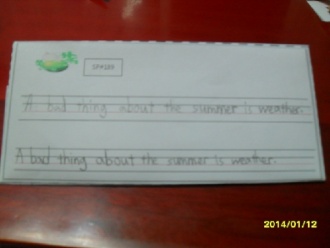 A bad thing about the summer is weather.
A bad thing about the summer is weather.
2014/01/12